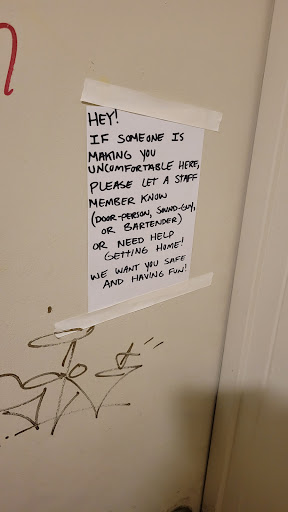 HEY!
IF SOMEONE IS
MAKING YOU
UNCOMFORTABLE HERE,
PLEASE LET A STAFF
MEMBER KNOW
(DOOR-PERSON, SOUND-GUY,
OR BARTENDER)
OR NEED HELP
GETTING HOME!
WE WANT YOU SAFE
AND HAVING FUN!